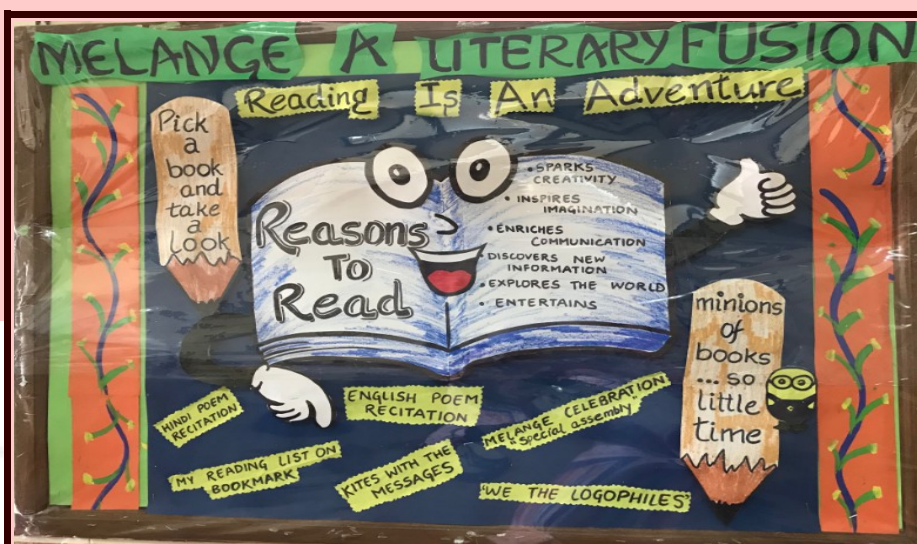 MELANGE A LITERARY FUSION
Reading Is An Adventure
Pick
a
book
and
take
a
look
Reasons
To
Read
• SPARKS
CREATIVITY
• INSPIRES
IMAGINATION
• ENRICHES
COMMUNICATION
• DISCOVERS NEW
INFORMATION
• EXPLORES THE WORLD
• ENTERTAINS
minions
of
books
... so
little
time
HINDI POEM
RECITATION
ENGLISH POEM
RECITATION
MELANGE CELEBRATION
special assembly
MY READING LIST ON
BOOKMARK
KITES WITH THE
MESSAGES
'WE THE LOGOPHILES'